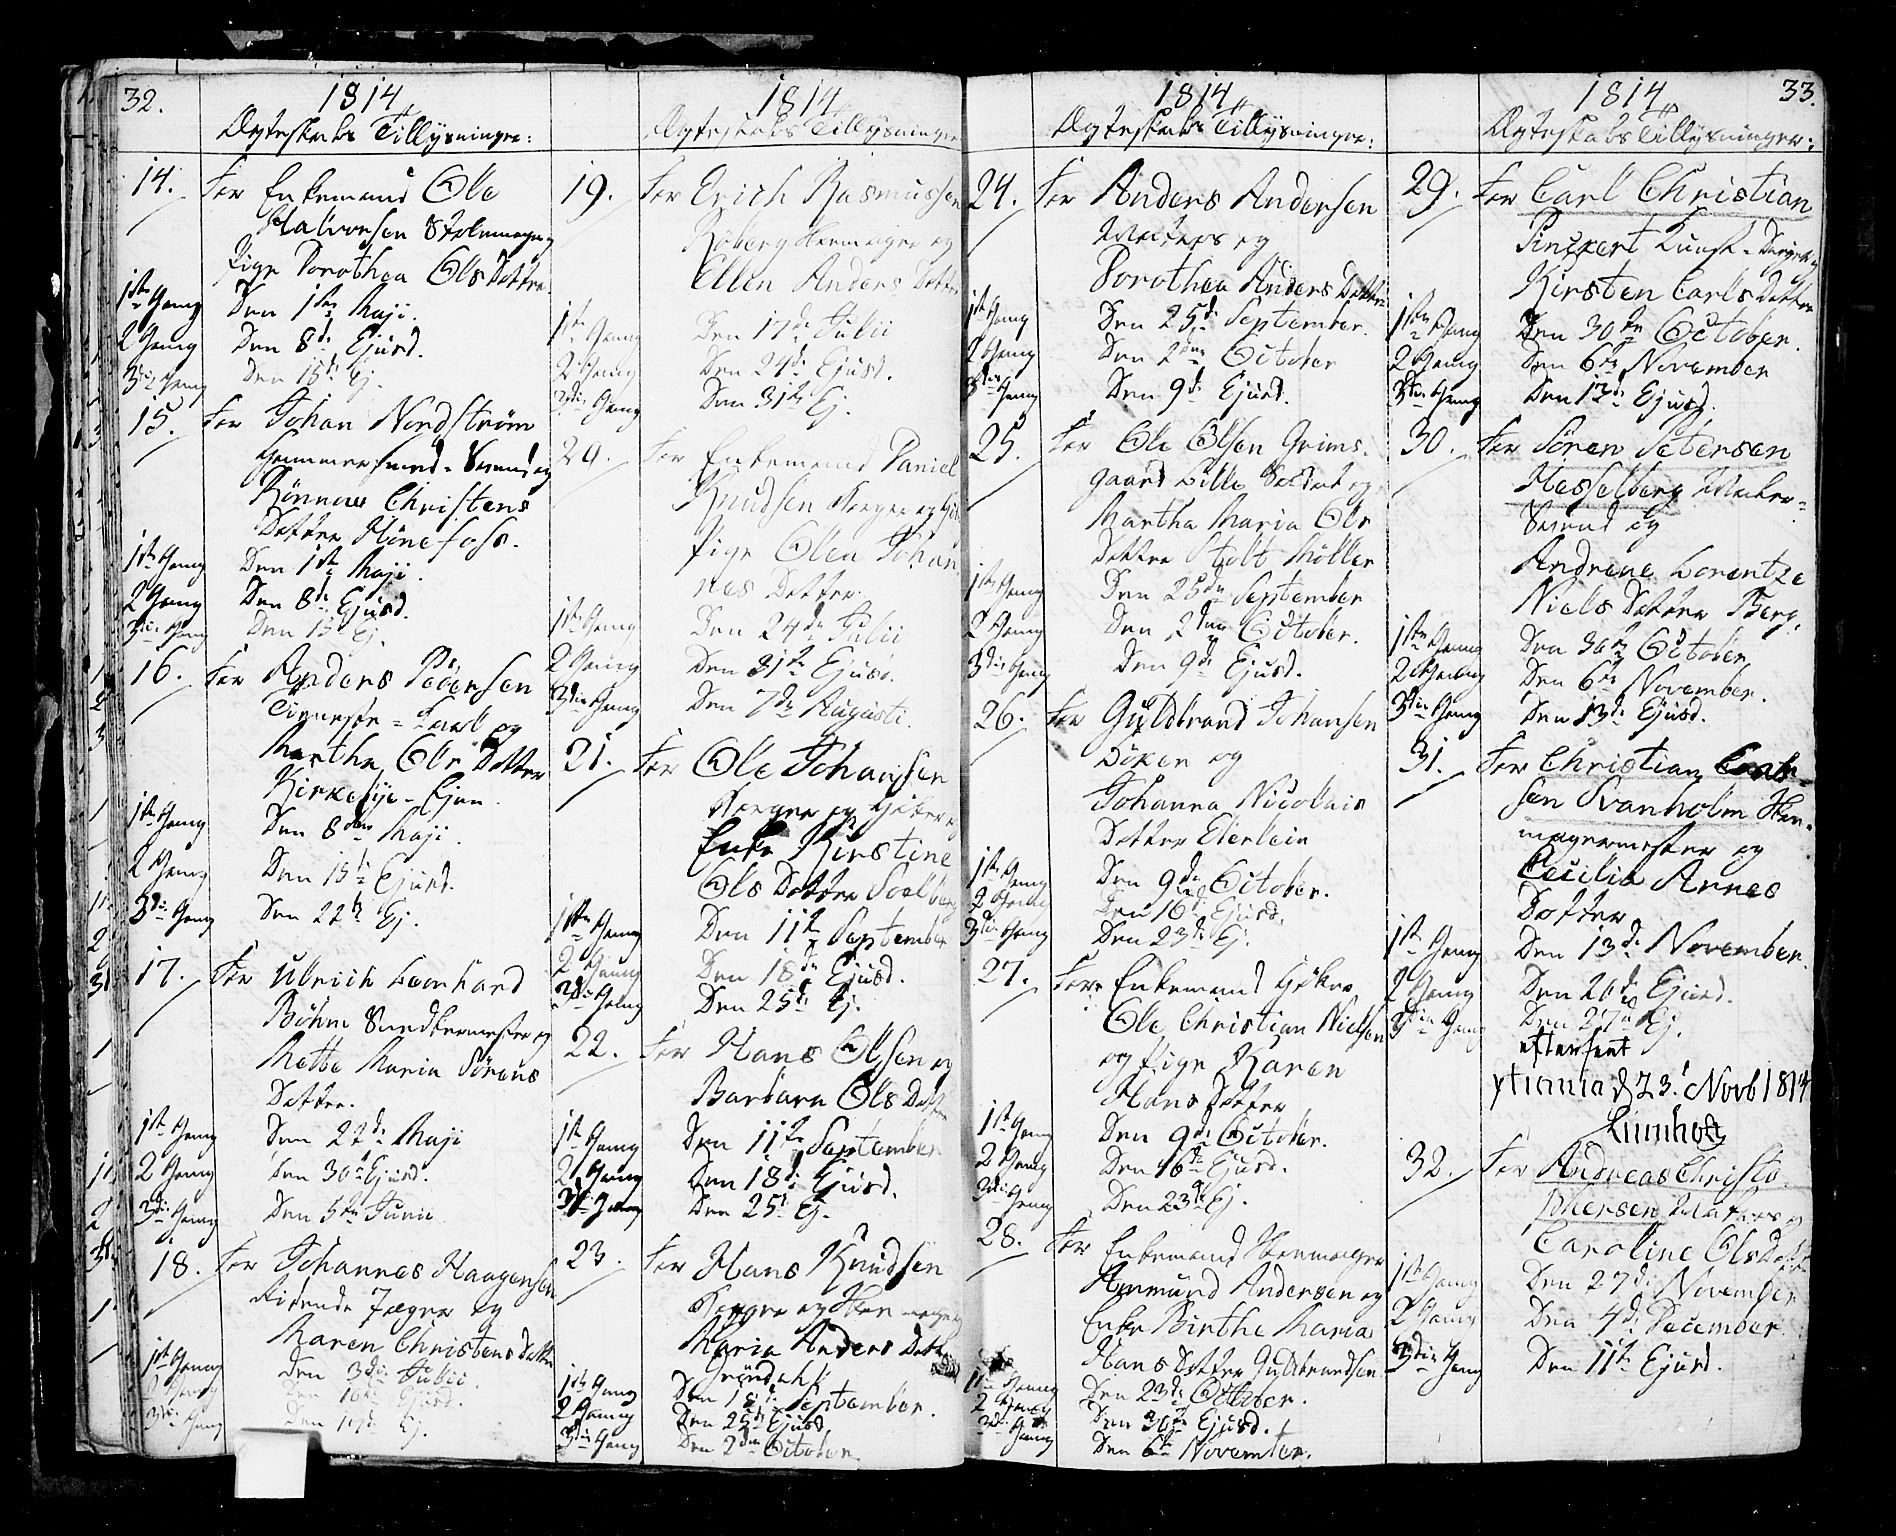 32.
1814
Ægteskabs Tillysninger:
14. For Enkemand Ole
Halvorsen Stolemager
Pige Dorothea Ols Datter
1ste Gang Den 1ste Maji.
2 Gang Den 8de Ejusd.
3die Gang Den 15de Ej.
15. For Johan Nordström
Hammersmed-Svend og
Rönnau Christens
Datter Hönefoss.
1ste Gang Den 1ste Maji.
2 Gang Den 8de Ejusd.
3die Gang Den 15de Ej.
16. For Anders Pedersen
Tieneste-Karl og
Martha Ols Datter
Kirkebye-Ejen
1ste Gang Den 8de Maji.
2 Gang Den 15de Ejusd.
3die Gang Den 22de Ej.
17. For Ulrich Leonhard
Böhm og
Mette Maria Sörens
Datter.
1ste Gang Den 22de Maji
2 Gang Den 30te Ejusd.
3die Gang Den 5te Junii
18. For Johannes Haagensen
Ridende Jæger og
Maren Christens Datter
1ste Gang Den 3die Julii.
2 Gang Den 10de Ejusd.
3die Gang Den Ej.
1814
Ægteskabs Tillysninger
19. For Erich Rasmussen
Koberg Skomager og
Ellen Anders Datter
1ste Gang Den 17de Julii
2 Gang Den 24de Ejusd.
3die Gang Den 31te Ej.
20. For Enkemand Daniel
Knudsen Borger og
Pige Olea Johan
nes Datter.
1ste Gang Den 24de Julii
2 Gang Den 31te Ejusd.
3die Gang Den 7de Augusti.
21. For Ole Johansen
Borger og Höker og
Enke Kirstine
Ols Datter Solberg
1ste Gang Den 11te September
2 Gang Den 18de Ejusd.
3die Gang Den 25de Ej.
22. For Hans Olsen og
Barbara Ols Datter
1ste Gang Den 11te September
2 Gang Den 18de Ejusd.
3die Gang Den 25de Ej.
23. For Hans Knudsen
Borger og Skomager
Maria Anders Datter
Gröndahl
1ste Gang Den 18de September.
2 Gang Den 25de Ejusd.
3die Gang Den 2den October.
1814
Ægteskabs Tillysninger:
24. For Anders Andersen
Matros og
Dorothea Anders Datter
1ste Gang Den 25de September.
2 Gang Den 2den October
3die Gang Den 9de Ejusd.
25. For Ole Olsen Grims-
gaard Lille Soldat og
Martha Maria Ols
Datter Holt Möller
1ste Gang Den 25de September
2 Gang Den 2den October.
3die Gang Den 9de Ejusd.
26. For Guldbrand Johansen
Böken og
Johanna Nicolais
Datter Elerlein
1ste Gang Den 9de October.
2 Gang Den 16de Ejusd.
3die Gang Den 23de Ej.
27. For Enkemand Höker
Ole Christian Nielsen
og Pige Karen
Hans Datter
1ste Gang Den 9de October.
2 Gang Den 16de Ejusd.
3die Gang Den 23de Ej.
28. For Enkemand Skomager
Amund Andersen og
Enke Birthe Maria
Hans Datter Guldbrandsen
1ste Gang Den 23de October.
2 Gang Den 30te Ejusd.
3die Gang Den 6te November.
33.
1814
Ægteskabs Tillysninger:
29. For Carl Christian
Pinckert Kunst-Dreier og
Kirsten Carls Datter
1ste Gang Den 30te October.
2 Gang Den 6te November
3die Gang Den 13de Ejusd.
30. For Sören Petersen
Hesselberg
Svend og
Andrene Lorentze
Niels Datter Berg.
1ste Gang Den 30te October
2 Gang Den 6te November.
3die Gang Den 13de Ejusd.
31. For Christian
sen Svanholm Sko-
magermester og
Cecilia Arnes
Datter
1ste Gang Den 13de November.
2 Gang Den 20de Ejusd.
3die Gang Den 27de Ej.
attesteret
Xtiania d 23' Novb 1814
32. For Andreas Christo
phersen Matros og
Caroline Ols Datter
1ste Gang Den 27de November
2 Gang Den 4de December.
3die Gang Den 11te Ejusd.